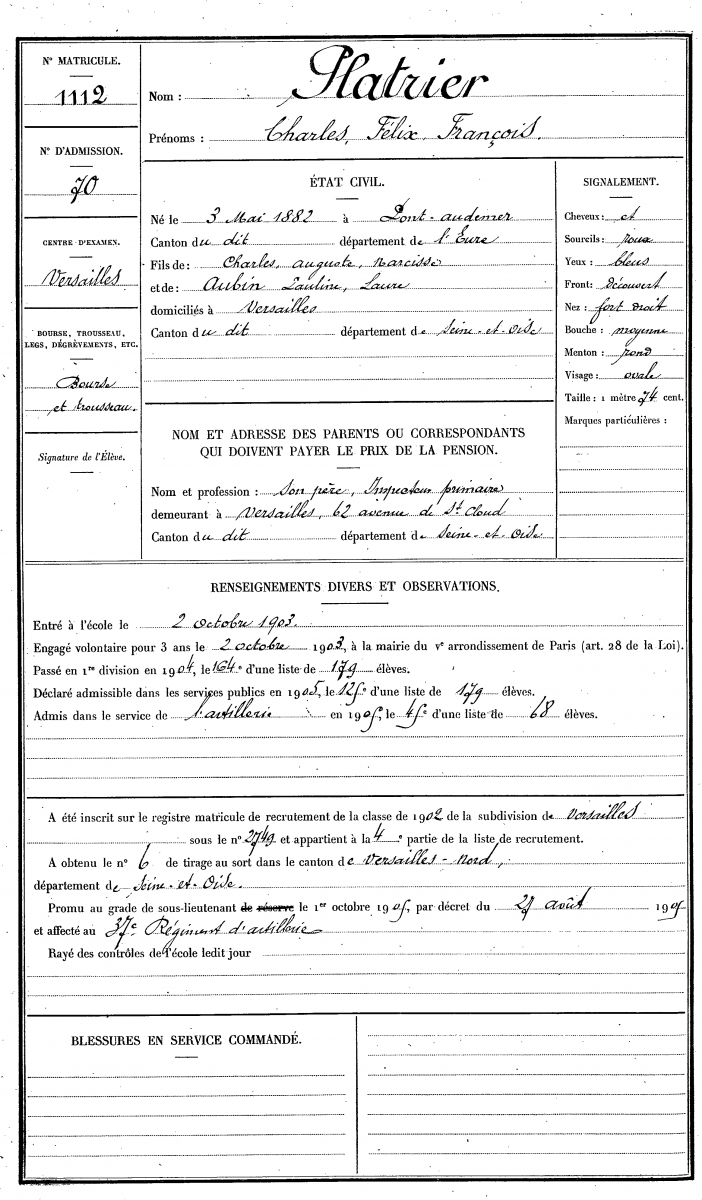 N° MATRICULE.
1112
N° D'ADMISSION.
70
CENTRE D'EXAMEN.
Versailles
BOURSE, TROUSSEAU,
LEGS, DÉGRÈVEMENTS, ETC.
Bourse
et trousseau.
Signature de l'Élève.
Nom : Platrier
Prénoms : Charles, Félix, François.
ÉTAT CIVIL.
Né le 3 Mai 1882 à Pont-audemer
Canton du dit département de l'Eure
Fils de : Charles, auguste, Narcisse
et de : Aubin Pauline, Laure
domiciliés à Versailles
Canton du dit département de Seine-et-Oise
NOM ET ADRESSE DES PARENTS OU CORRESPONDANTS
QUI DOIVENT PAYER LE PRIX DE LA PENSION.
Nom et profession : Son père, Inspecteur primaire
demeurant à Versailles, 62 avenue de St Cloud
Canton du dit département de Seine-et-Oise
SIGNALEMENT.
Cheveux : et
Sourcils : roux
Yeux : bleus
Front : découvert
Nez : fort droit
Bouche : moyenne
Menton : rond
Visage : ovale
Taille : 1 mètre 74 cent.
Marques particulières :
RENSEIGNEMENTS DIVERS ET OBSERVATIONS.
Entré à l'école le 2 octobre 1903.
Engagé volontaire pour 3 ans le 2 octobre 1903, à la mairie du Ve arrondissement de Paris (art. 28 de la Loi).
Passé en 1re division en 1904, le 164e d'une liste de 179 élèves.
Déclaré admissible dans les services publics en 1905, le 125e d'une liste de 179 élèves.
Admis dans le service de l'artillerie en 1905, le 45e d'une liste de 68 élèves.
A été inscrit sur le registre matricule de recrutement de la classe de 1902 de la subdivision de Versailles
sous le n° 2749 et appartient à la 4e partie de la liste de recrutement.
A obtenu le n° 6 de tirage au sort dans le canton de Versailles-Nord,
département de Seine-et-Oise.
Promu au grade de sous-lieutenant de réserve le 1er octobre 1905, par décret du 27 août 1905
et affecté au 37e Régiment d'artillerie
Rayé des contrôles de l'école ledit jour
BLESSURES EN SERVICE COMMANDÉ.